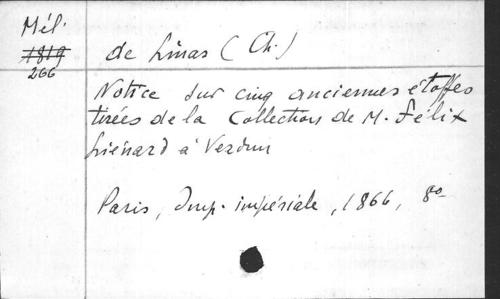 Mél.
1819
266
de Linas (Ch.)
Notice sur cinq anciennes étoffes
tirées de la Collection de M. Félix
Liénard à Verdun
Paris, Imp. impériale, 1866, 8º